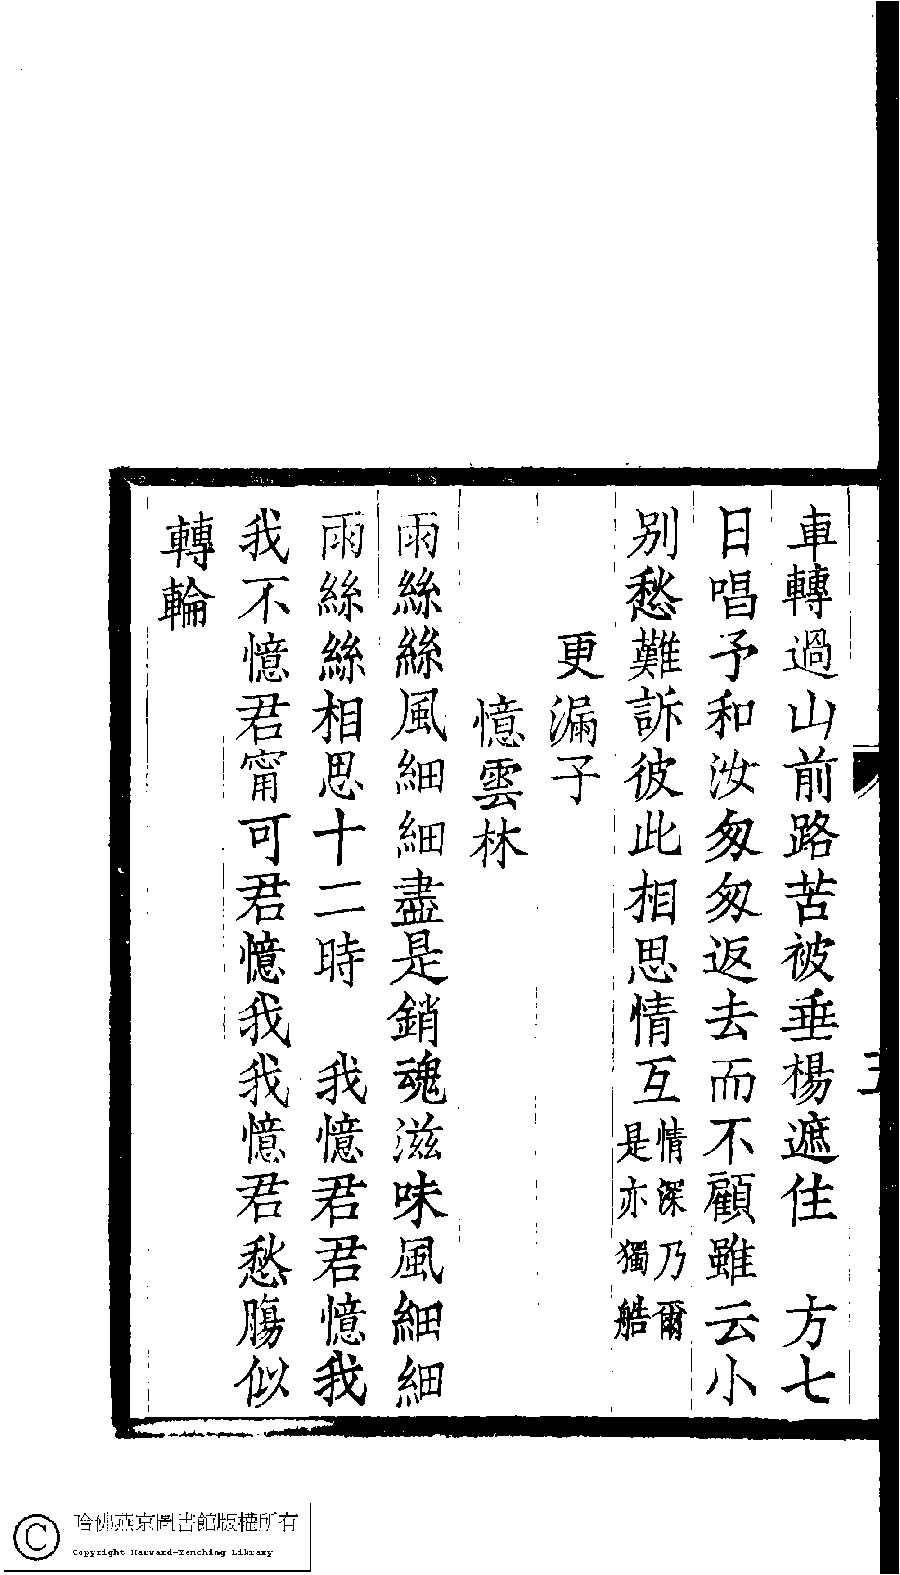 車轉過山前路苦被垂楊遮住　方七
日唱予和汝匆匆返去而不顧雖云小
别愁難訴彼此相思情互情深乃爾是亦獨
更漏子
憶雲林
雨絲絲風細細盡是銷魂滋味風細細
雨絲絲相思十二時　我憶君君憶我
我不憶君甯可君憶我我憶君愁腸似
轉輪
哈佛燕京圖書館版權所有
Copyright Harvard-Yenching Library